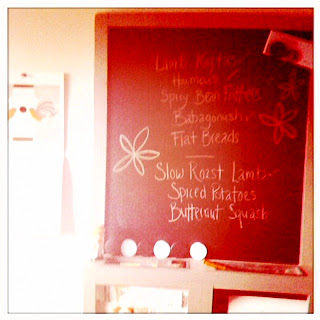 Lamb Koftas
Spicy Bean
Flat Breads
Slow Roast Lamb
Spiced Potatoes
Butternut Squash